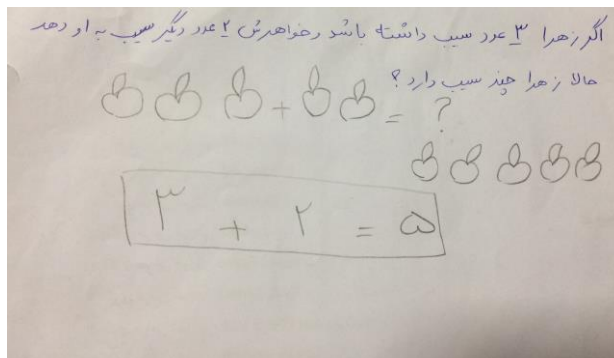 اگر زهرا ۳ عدد سیب داشته باشد و خواهرش ۲ عدد دیگر سیب به او دهد
حالا زهرا چند سیب دارد؟
+ = ?
۳ + ۲ = ۵